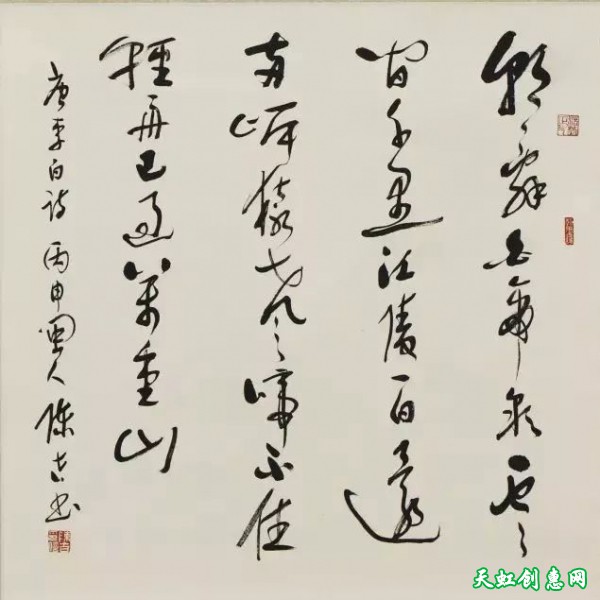 朝辞白帝彩云
间千里江陵一日還
两岸猿声啼不住
輕舟已过萬重山
唐李白诗 丙申闽人陈吉书
天虹创惠网